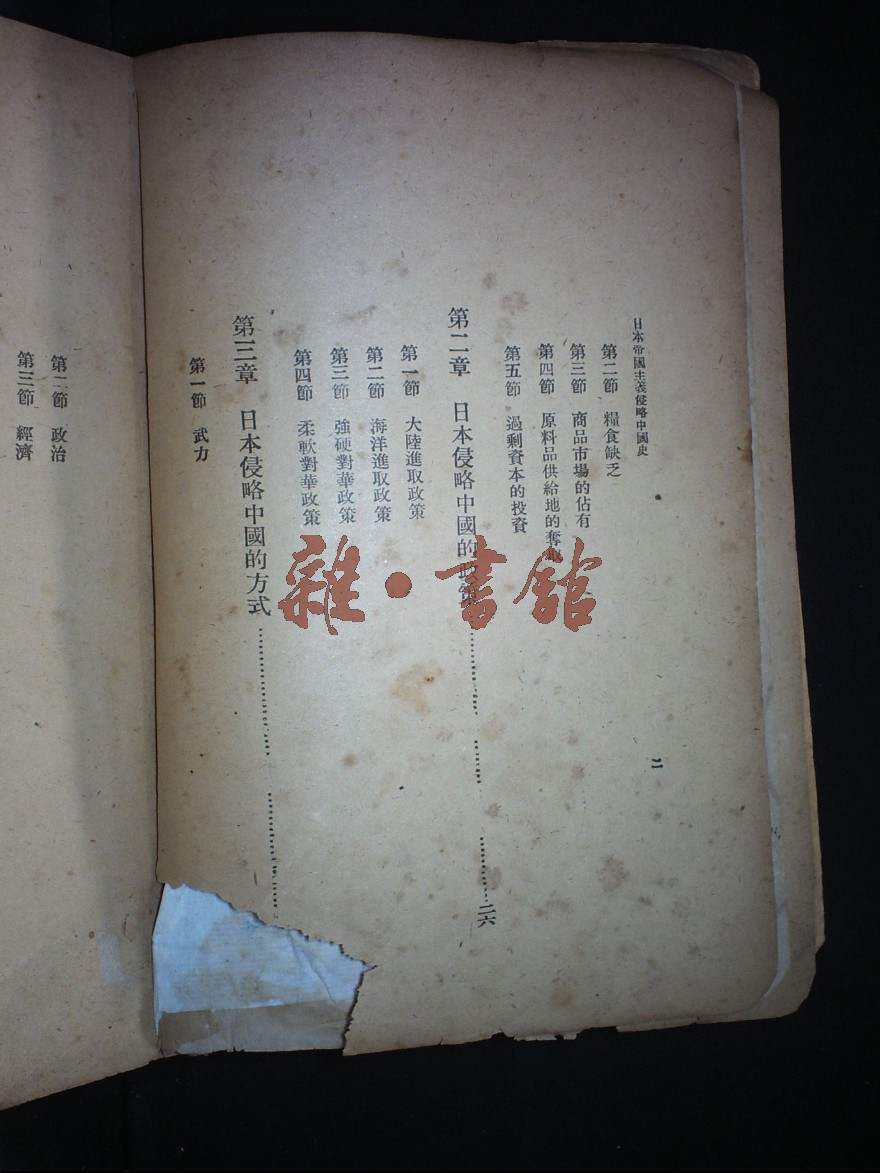 日本帝國主義侵略中國史
二
第二節 糧食缺乏
第三節 商品市場的佔有
第四節 原料品供給地的奪取
第五節 過剩資本的投資
第二章 日本侵略中國的政策……二六
第一節 大陸進取政策
第二節 海洋進取政策
第三節 強硬對華政策
第四節 柔軟對華政策
第三章 日本侵略中國的方式……
第一節 武力
第二節 政治
第三節 經濟
雜·書館